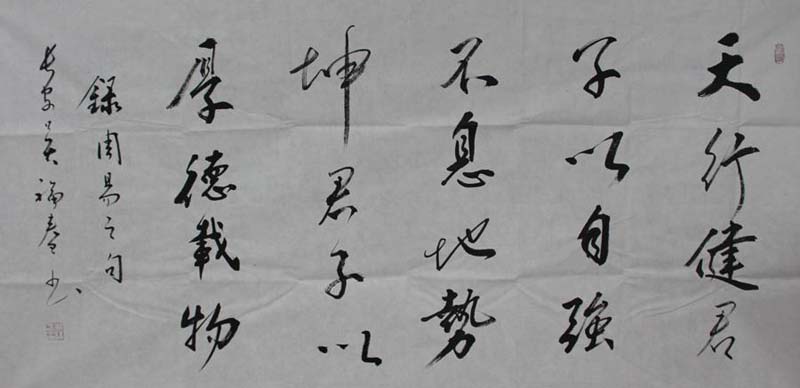 天行健君
子以自強
不息地勢
坤君子以
厚德載物
錄周易之句
長安吳福春书